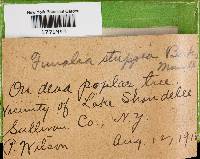 New York Botanical Garden
Funalia stuppea Berk
On dead poplar tree.
Vicinity of Lake Shandelee
Sullivan Co., N.Y.
P. Wilson Aug. 12, 191